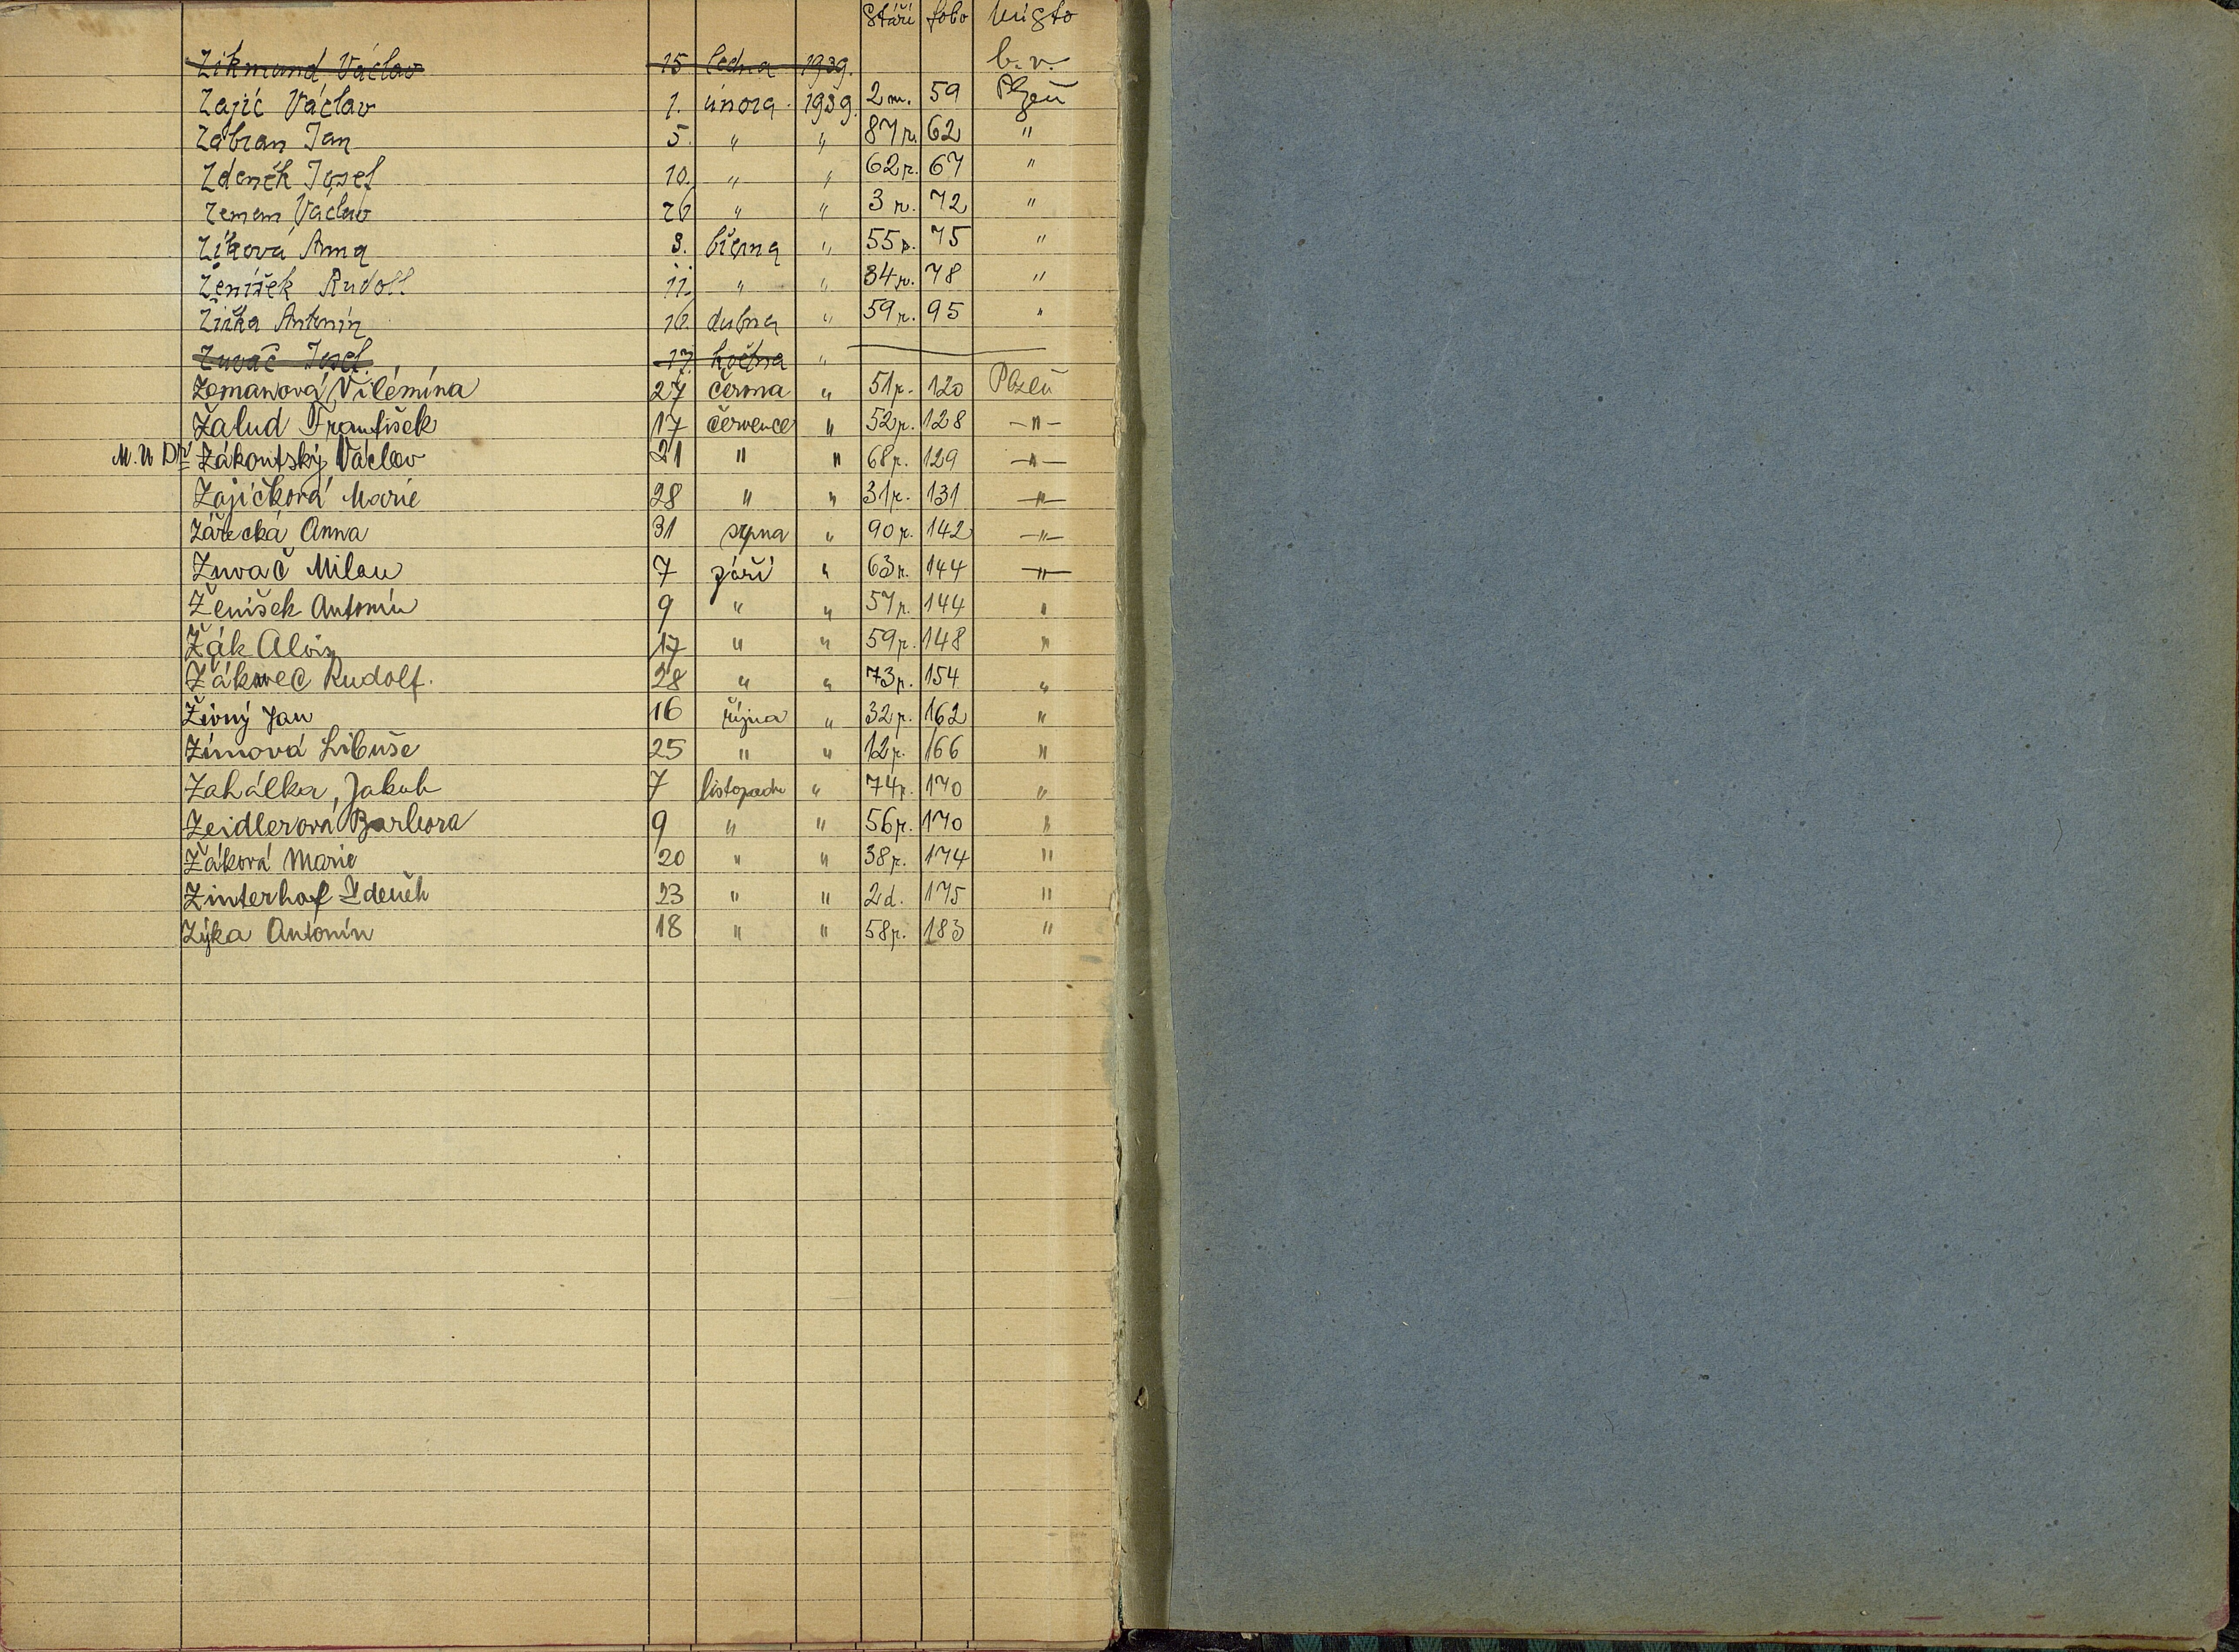 Stáří folio Místo
Zikmund Václav 15 ledna 1939. b. v.
Zajíc Václav 1. února 1939. 2 m. 59 Plzeň
Zábran Jan 5. " " 87 r. 62 "
Zdeněk Josef 10. " " 62 r. 67 "
Zeman Václav 26 " " 3 r. 72 "
Zíková Anna 3. března " 55 r. 75 "
Ženíšek Rudolf 11. " " 34 r. 78 "
Žižka Antonín 16. dubna " 59 r. 95 "
Zuvač Josef. 17. května "
Zemanová Vilémína 27 června " 51 r. 120 Plzeň
Žalud František 17 července " 52 r. 128 —"—
M. U Dr Zákoutský Václav 21 " " 68 r. 129 —"—
Zajíčková Marie 28 " " 31 r. 131 —"—
Zářecká Anna 31 srpna " 90 r. 142 —"—
Zuvač Milan 7 září " 63 r. 144 —"—
Ženíšek Antonín 9 " " 57 r. 144 "
Žák Alois 17 " " 59 r. 148 "
Žákavec Rudolf. 28 " " 73 r. 154 "
Živný Jan 16 října " 32 r. 162 "
Zímová Libuše 25 " " 12 r. 166 "
Zahálka, Jakub 7 listopadu " 74 r. 170 "
Zeidlerová Barbora 9 " " 56 r. 170 "
Žáková Marie 20 " " 38 r. 174 "
Zinterhof Zdeněk 23 " " 2 d. 175 "
Zýka Antonín 18 " " 58 r. 183 "